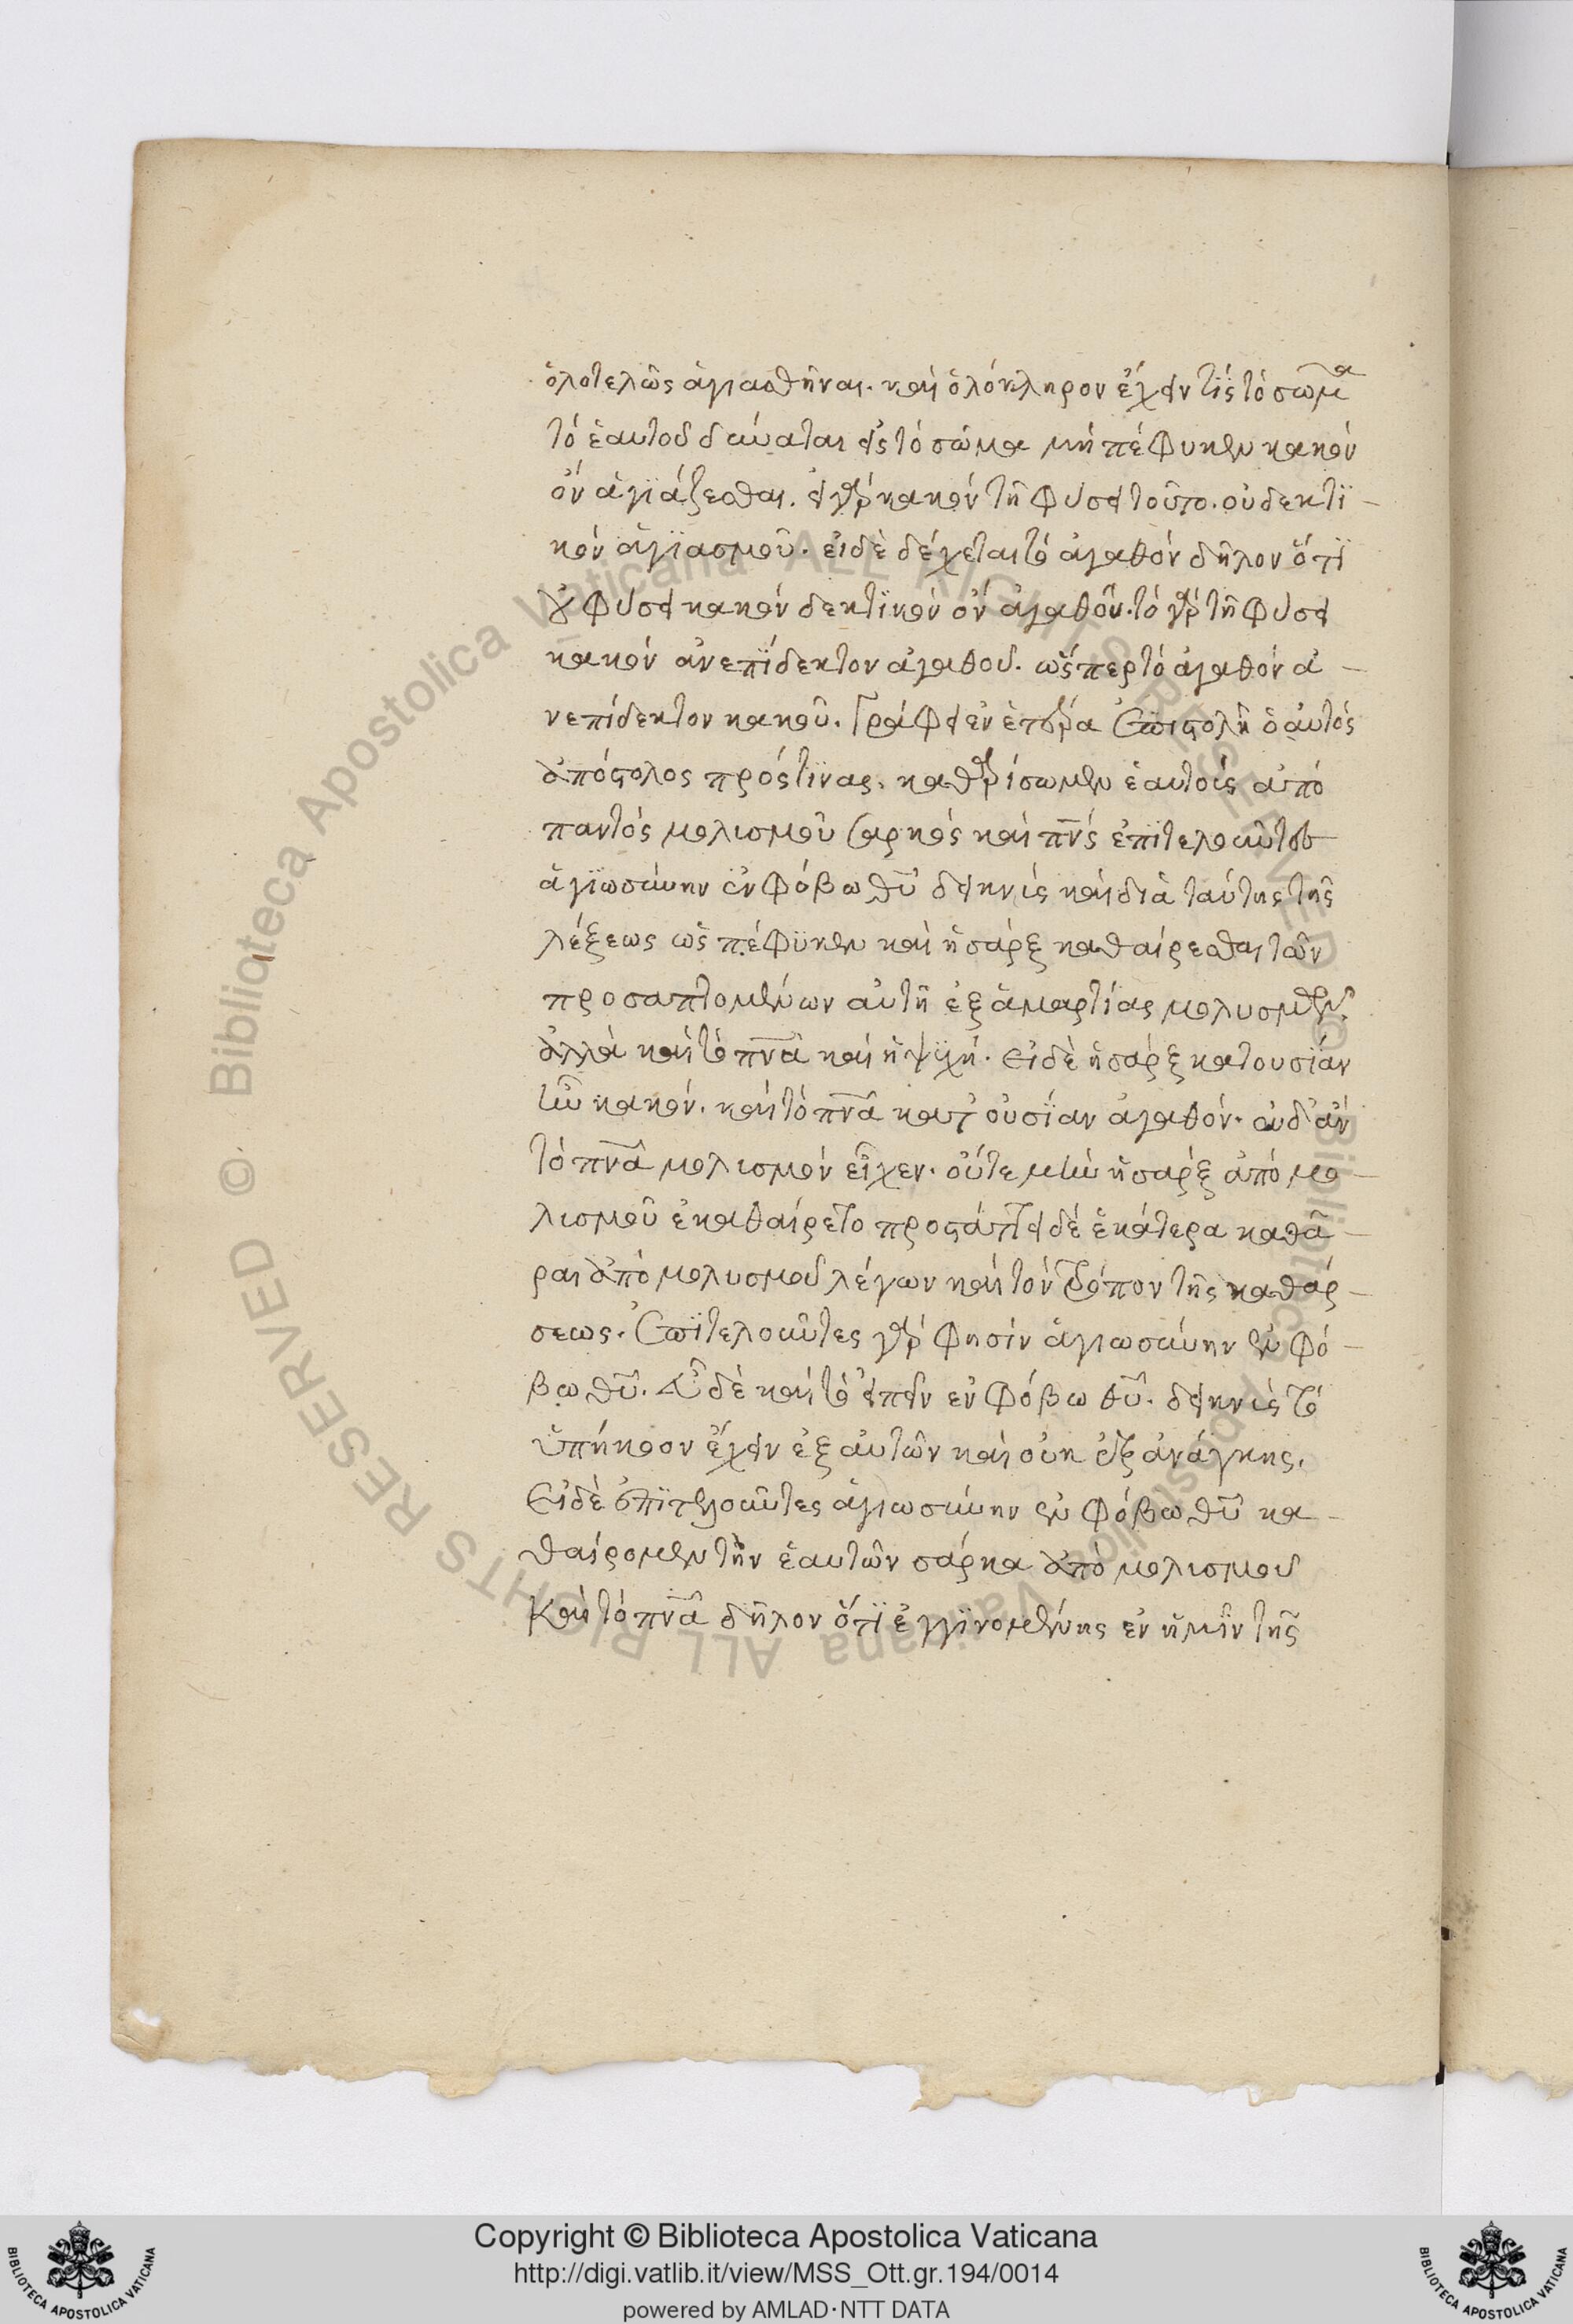 ὁλοτελῶς ἁγιασθῆναι. καὶ ὁλόκληρον ἔχειν τίς τὸ σῶμα
τὸ ἑαυτοῦ δύναται εἰς τὸ σώμα μὴ πέφυκεν κακὸν
ὂν ἁγϊάζεσθαι. εἰ γὰρ κακὸν τῆ φύσει τοῦτο. οὐ δεκτϊ-
κὸν ἁγϊασμοῦ. εἰ δὲ δέχεται τὸ ἀγαθὸν δῆλον ὅτϊ
οὐ φύσει κακὸν δεκτϊκὸν ὂν ἀγαθοῦ. τὸ γὰρ τῆ φύσει
κακὸν ἀνεπϊδεκτον ἀγαθοῦ. ὥσπερ τὸ ἀγαθὸν ἀ-
νεπίδεκτον κακοῦ. Γράφει ἐν ἑτέρα ἐπιστολῆ ὁ αὐτὸς
ἀπόστολος πρός τϊνας. καθαρίσωμεν ἑαυτοὺς ἀπὸ
παντὸς μολισμοῦ σαρκὸς καὶ πνς ἐπϊτελοῦντες
ἁγϊωσύνην ἐν φόβω θῦ δεικνὺς καὶ διὰ ταύτης τῆς
λέξεως ὡς πέφϋκεν καὶ ἡ σάρξ καθαίρεσθαι τῶν
προσαπτομένων αὐτῆ ἐξ ἁμαρτίας μολυσμῶν.
ἀλλὰ καὶ τὸ πνᾶ καὶ ἡ ψϋχή. εἰ δὲ ἡ σάρξ κατουσϊαν
ἦν κακόν. καὶ τὸ πνᾶ κατ οὐσϊαν ἀγαθόν. οὐδ ἂν
τὸ πνᾶ μολισμὸν εἶχεν. οὔτε μὴν ἡ σάρξ ἀπὸ μο-
λισμοῦ ἐκαθαίρετο προστάττει δὲ ἑκάτερα καθᾶ-
ραι ἀπὸ μολυσμοῦ λέγων καὶ τὸν τρόπον τῆς καθάρ-
σεως. ἐπϊτελοῦντες γὰρ φησὶν ἁγιωσύνην ἐν φό-
βω θῦ. εὖ δὲ καὶ τὸ εἰπεῖν ἐν φόβω θῦ. δεικνὺς τὸ
ὑπήκοον ἔχειν ἐξ αὐτῶν καὶ οὐκ ἐξ ἀνάγκης.
Εἰ δὲ ἐπϊτελοῦντες ἁγιωσύνην ἐν φόβω θῦ κα-
θαίρομεν τὴν ἑαυτῶν σάρκα ἀπὸ μολισμοῦ
Καὶ τὸ πνᾶ δῆλον ὅτϊ ἐγγϊνομένης ἐν ἡμῖν τῆς
Copyright © Biblioteca Apostolica Vaticana
http://digi.vatlib.it/view/MSS_Ott.gr.194/0014
powered by AMLAD·NTT DATA
© Biblioteca Apostolica Vaticana ALL RIGHTS RESERVED © Biblioteca Apostolica Vaticana ALL RIGHTS RESERVED
BIBLIOTECA APOSTOLICA VATICANA
BIBLIOTECA APOSTOLICA VATICANA